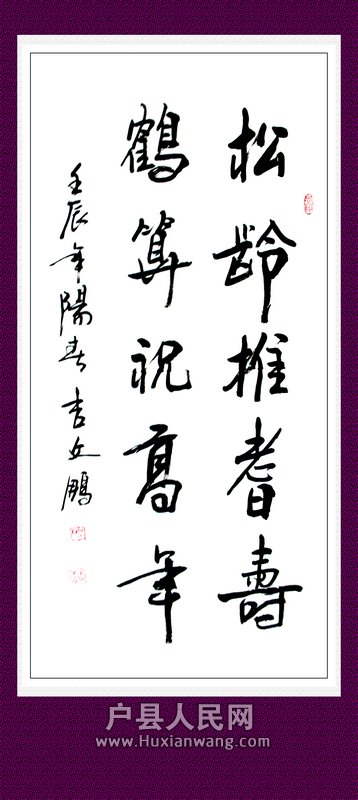 松龄推耆壽
鶴算祝高年
壬辰年陽春 吉丘鵬
户县人民网
www.Huxianwang.com